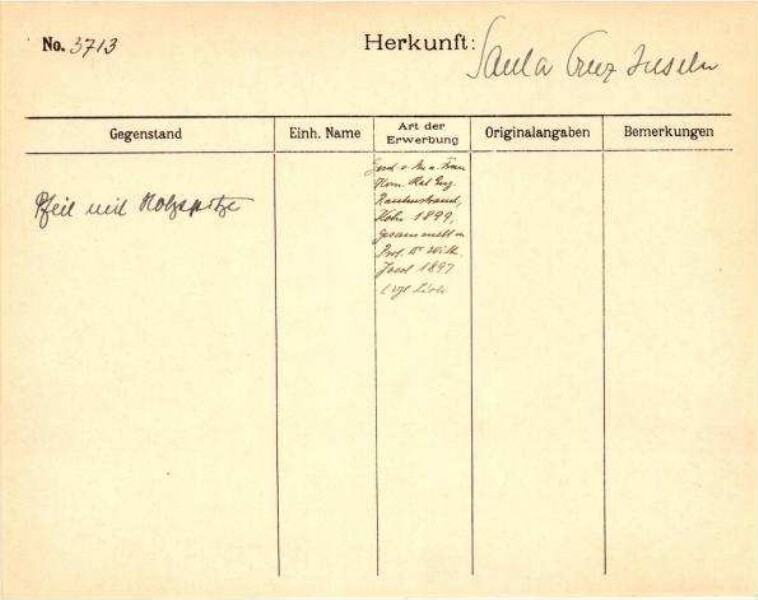 No. 3713
Herkunft: Santa Cruz Inseln
Gegenstand
Einh. Name
Art der Erwerbung
Originalangaben
Bemerkungen
Pfeil mit Holzspitze
Gesch. v. H. u. Frau
Rautenstrauch,
Köln 1899,
gesammelt v.
Prof. Dr Wilh.
Joest 1897